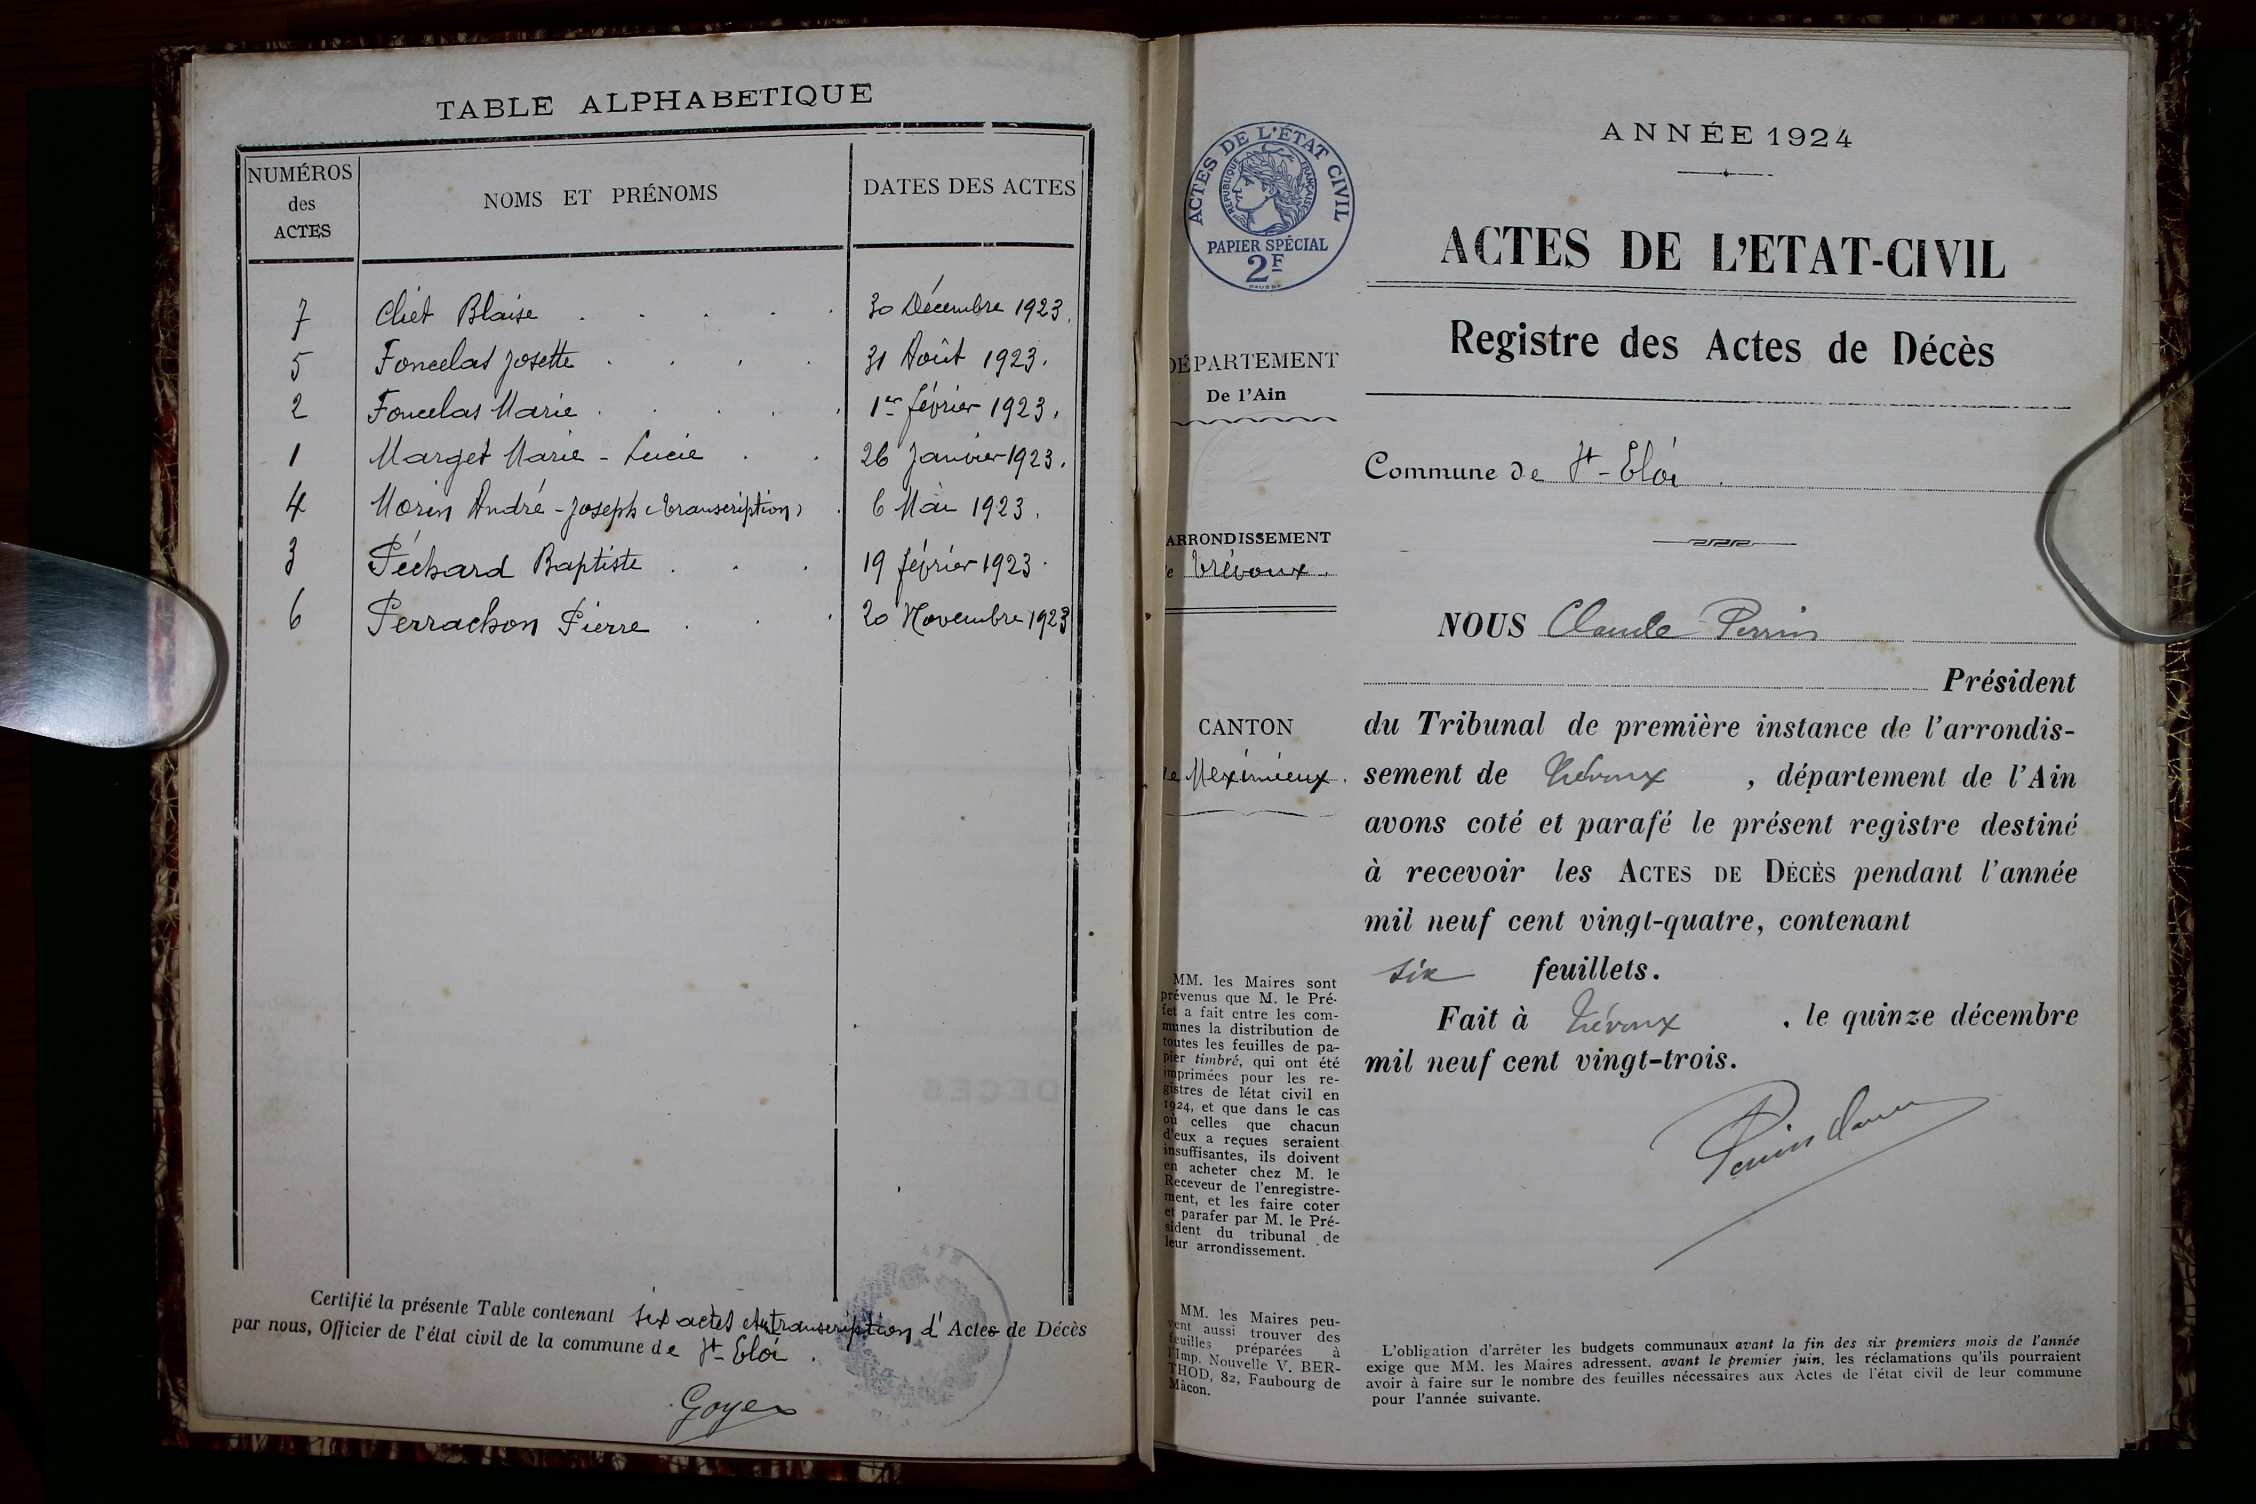 TABLE ALPHABETIQUE
NUMÉROS des ACTES
NOMS ET PRÉNOMS
DATES DES ACTES
7 Cliet Blaise . . . . . 30 Décembre 1923.
5 Foncelas Josette . . . . 31 Août 1923.
2 Foncelas Marie . . . . . 1er février 1923.
1 Marget Marie - Lucie . . 26 Janvier 1923.
4 Morin André - Joseph (transcription) . 6 Mai 1923.
3 Péchard Baptiste . . . 19 février 1923.
6 Perrachon Pierre . . . 20 Novembre 1923
Certifié la présente Table contenant six actes transcription d' Actes de Décès
par nous, Officier de l'état civil de la commune de St-Eloi.
Goyer
ACTES DE L'ÉTAT CIVIL
RÉPUBLIQUE FRANÇAISE
PAPIER SPÉCIAL
2F
DÉPARTEMENT
De l'Ain
ARRONDISSEMENT
e Trévoux.
CANTON
de Meximieux.
MM. les Maires sont
prévenus que M. le Pré-
fet a fait entre les com-
munes la distribution de
toutes les feuilles de pa-
pier timbré, qui ont été
imprimées pour les re-
gistres de l'état civil en
1924, et que dans le cas
où celles que chacun
d'eux a reçues seraient
insuffisantes, ils doivent
en acheter chez M. le
Receveur de l'enregistre-
ment, et les faire coter
et parafer par M. le Pré-
sident du tribunal de
leur arrondissement.
MM. les Maires peu-
vent aussi trouver des
feuilles préparées à
l'Imp. Nouvelle V. BER-
THOD, 82, Faubourg de
Mâcon.
ANNÉE 1924
ACTES DE L'ETAT-CIVIL
Registre des Actes de Décès
Commune de St-Eloi.
NOUS Claude Perrin
Président
du Tribunal de première instance de l'arrondis-
sement de Trévoux , département de l'Ain
avons coté et parafé le présent registre destiné
à recevoir les ACTES DE DÉCÈS pendant l'année
mil neuf cent vingt-quatre, contenant
six feuillets.
Fait à Trévoux , le quinze décembre
mil neuf cent vingt-trois.
L'obligation d'arrêter les budgets communaux avant la fin des six premiers mois de l'année
exige que MM. les Maires adressent, avant le premier juin, les réclamations qu'ils pourraient
avoir à faire sur le nombre des feuilles nécessaires aux Actes de l'état civil de leur commune
pour l'année suivante.